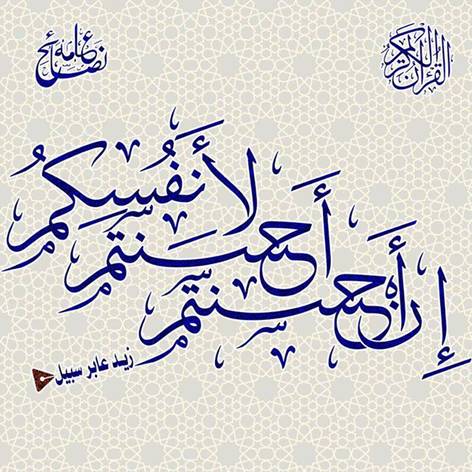 القرآن الكريم
نصائح عامة
إن أحسنتم أحسنتم لأنفسكم
زيد عابر سبيل